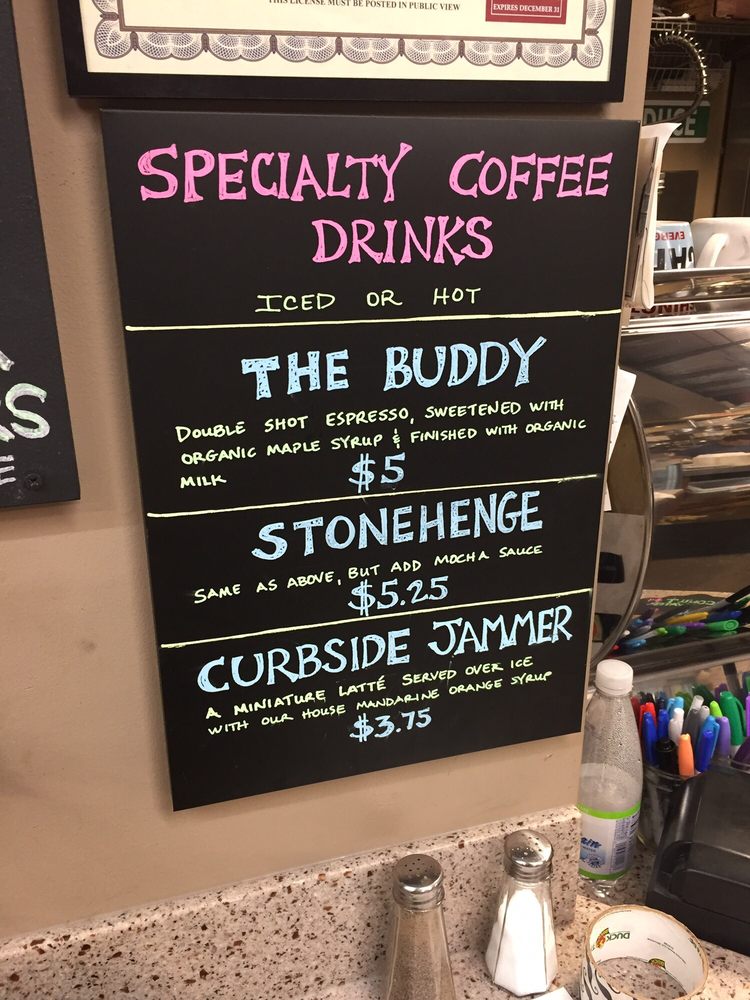 THIS LICENSE MUST BE POSTED IN PUBLIC VIEW
EXPIRES DECEMBER 31
SPECIALTY COFFEE
DRINKS
ICED OR HOT
THE BUDDY
DOUBLE SHOT ESPRESSO, SWEETENED WITH
ORGANIC MAPLE SYRUP & FINISHED WITH ORGANIC
MILK
$5
STONEHENGE
SAME AS ABOVE, BUT ADD MOCHA SAUCE
$5.25
CURBSIDE JAMMER
A MINIATURE LATTÉ SERVED OVER ICE
WITH OUR HOUSE MANDARINE ORANGE SYRUP
$3.75
DUCK